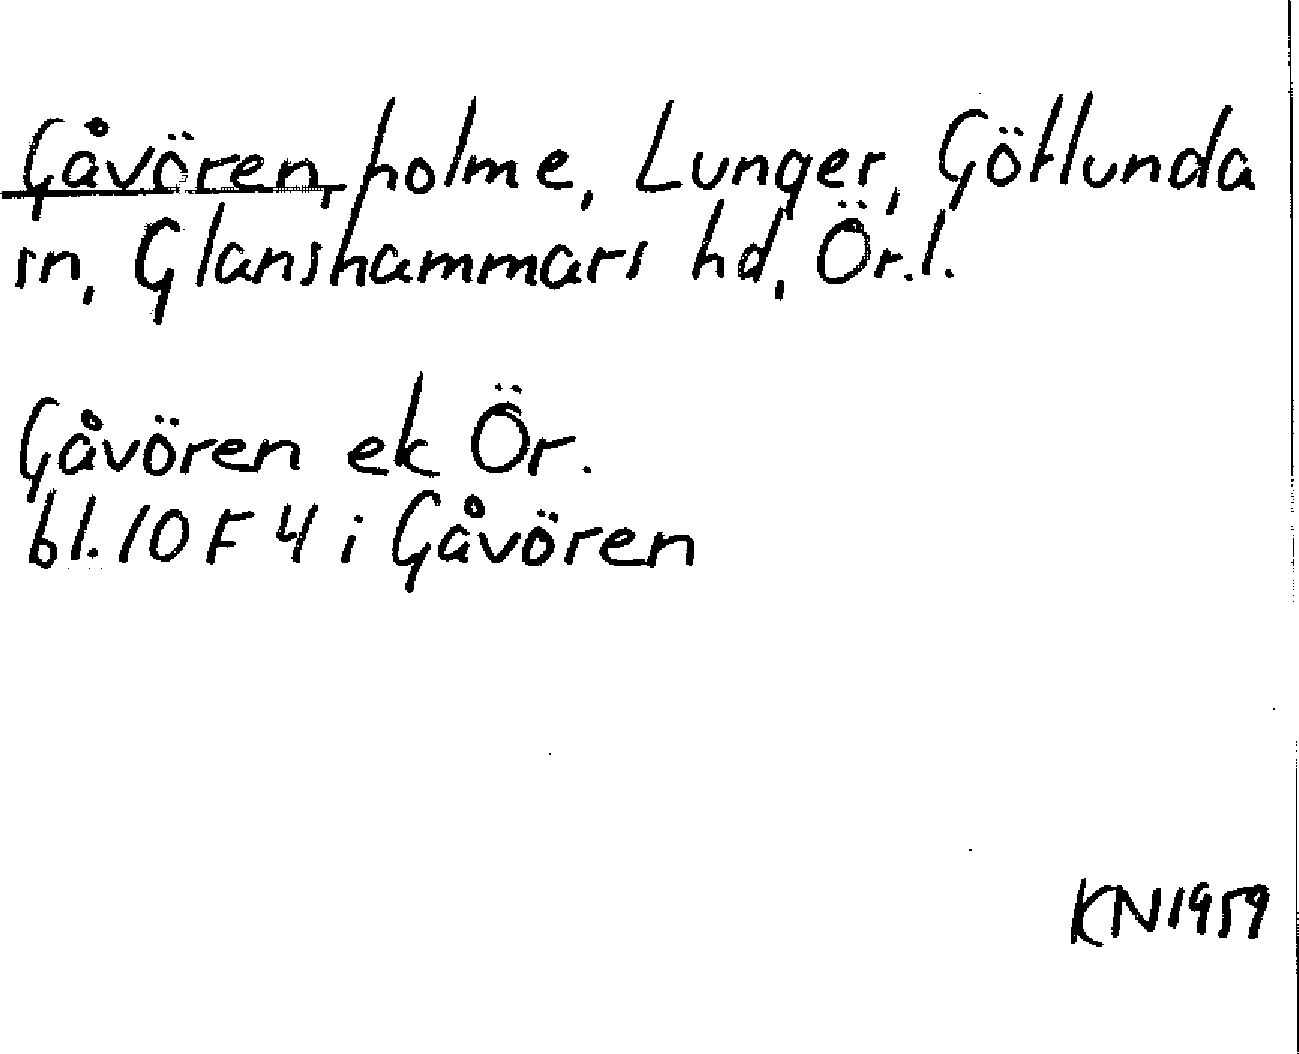 Gåvören, holme, Lunger, Götlunda
sn, Glanshammars hd, Ör.l.
Gåvören ek Ör.
bl. 10 F 4 i Gåvören
KN1959